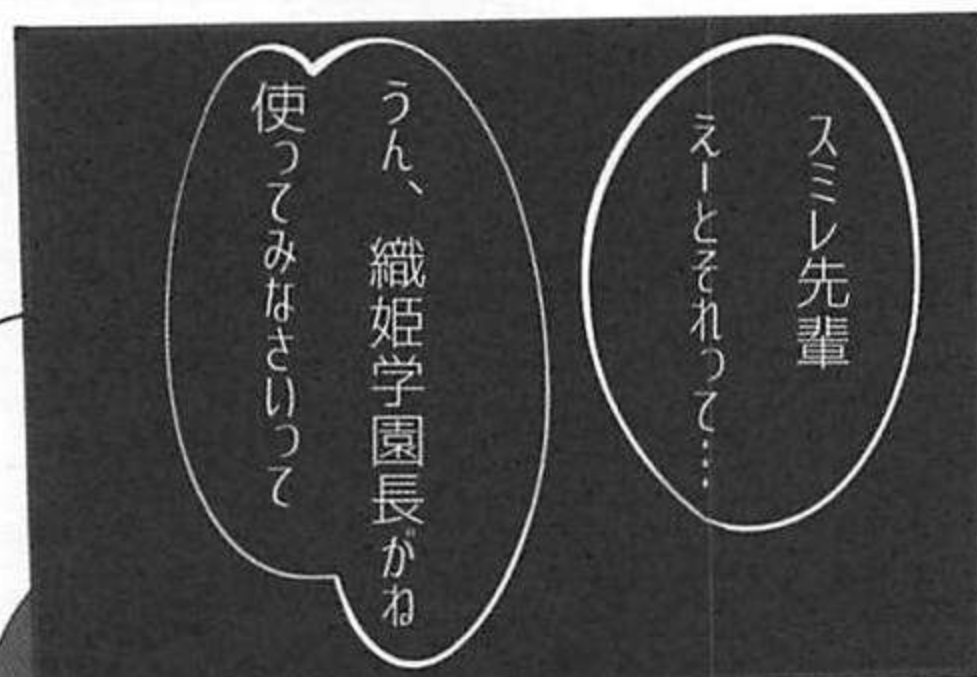 スミレ先輩
えーとそれって…
うん、織姫学園長がね
使ってみなさいって